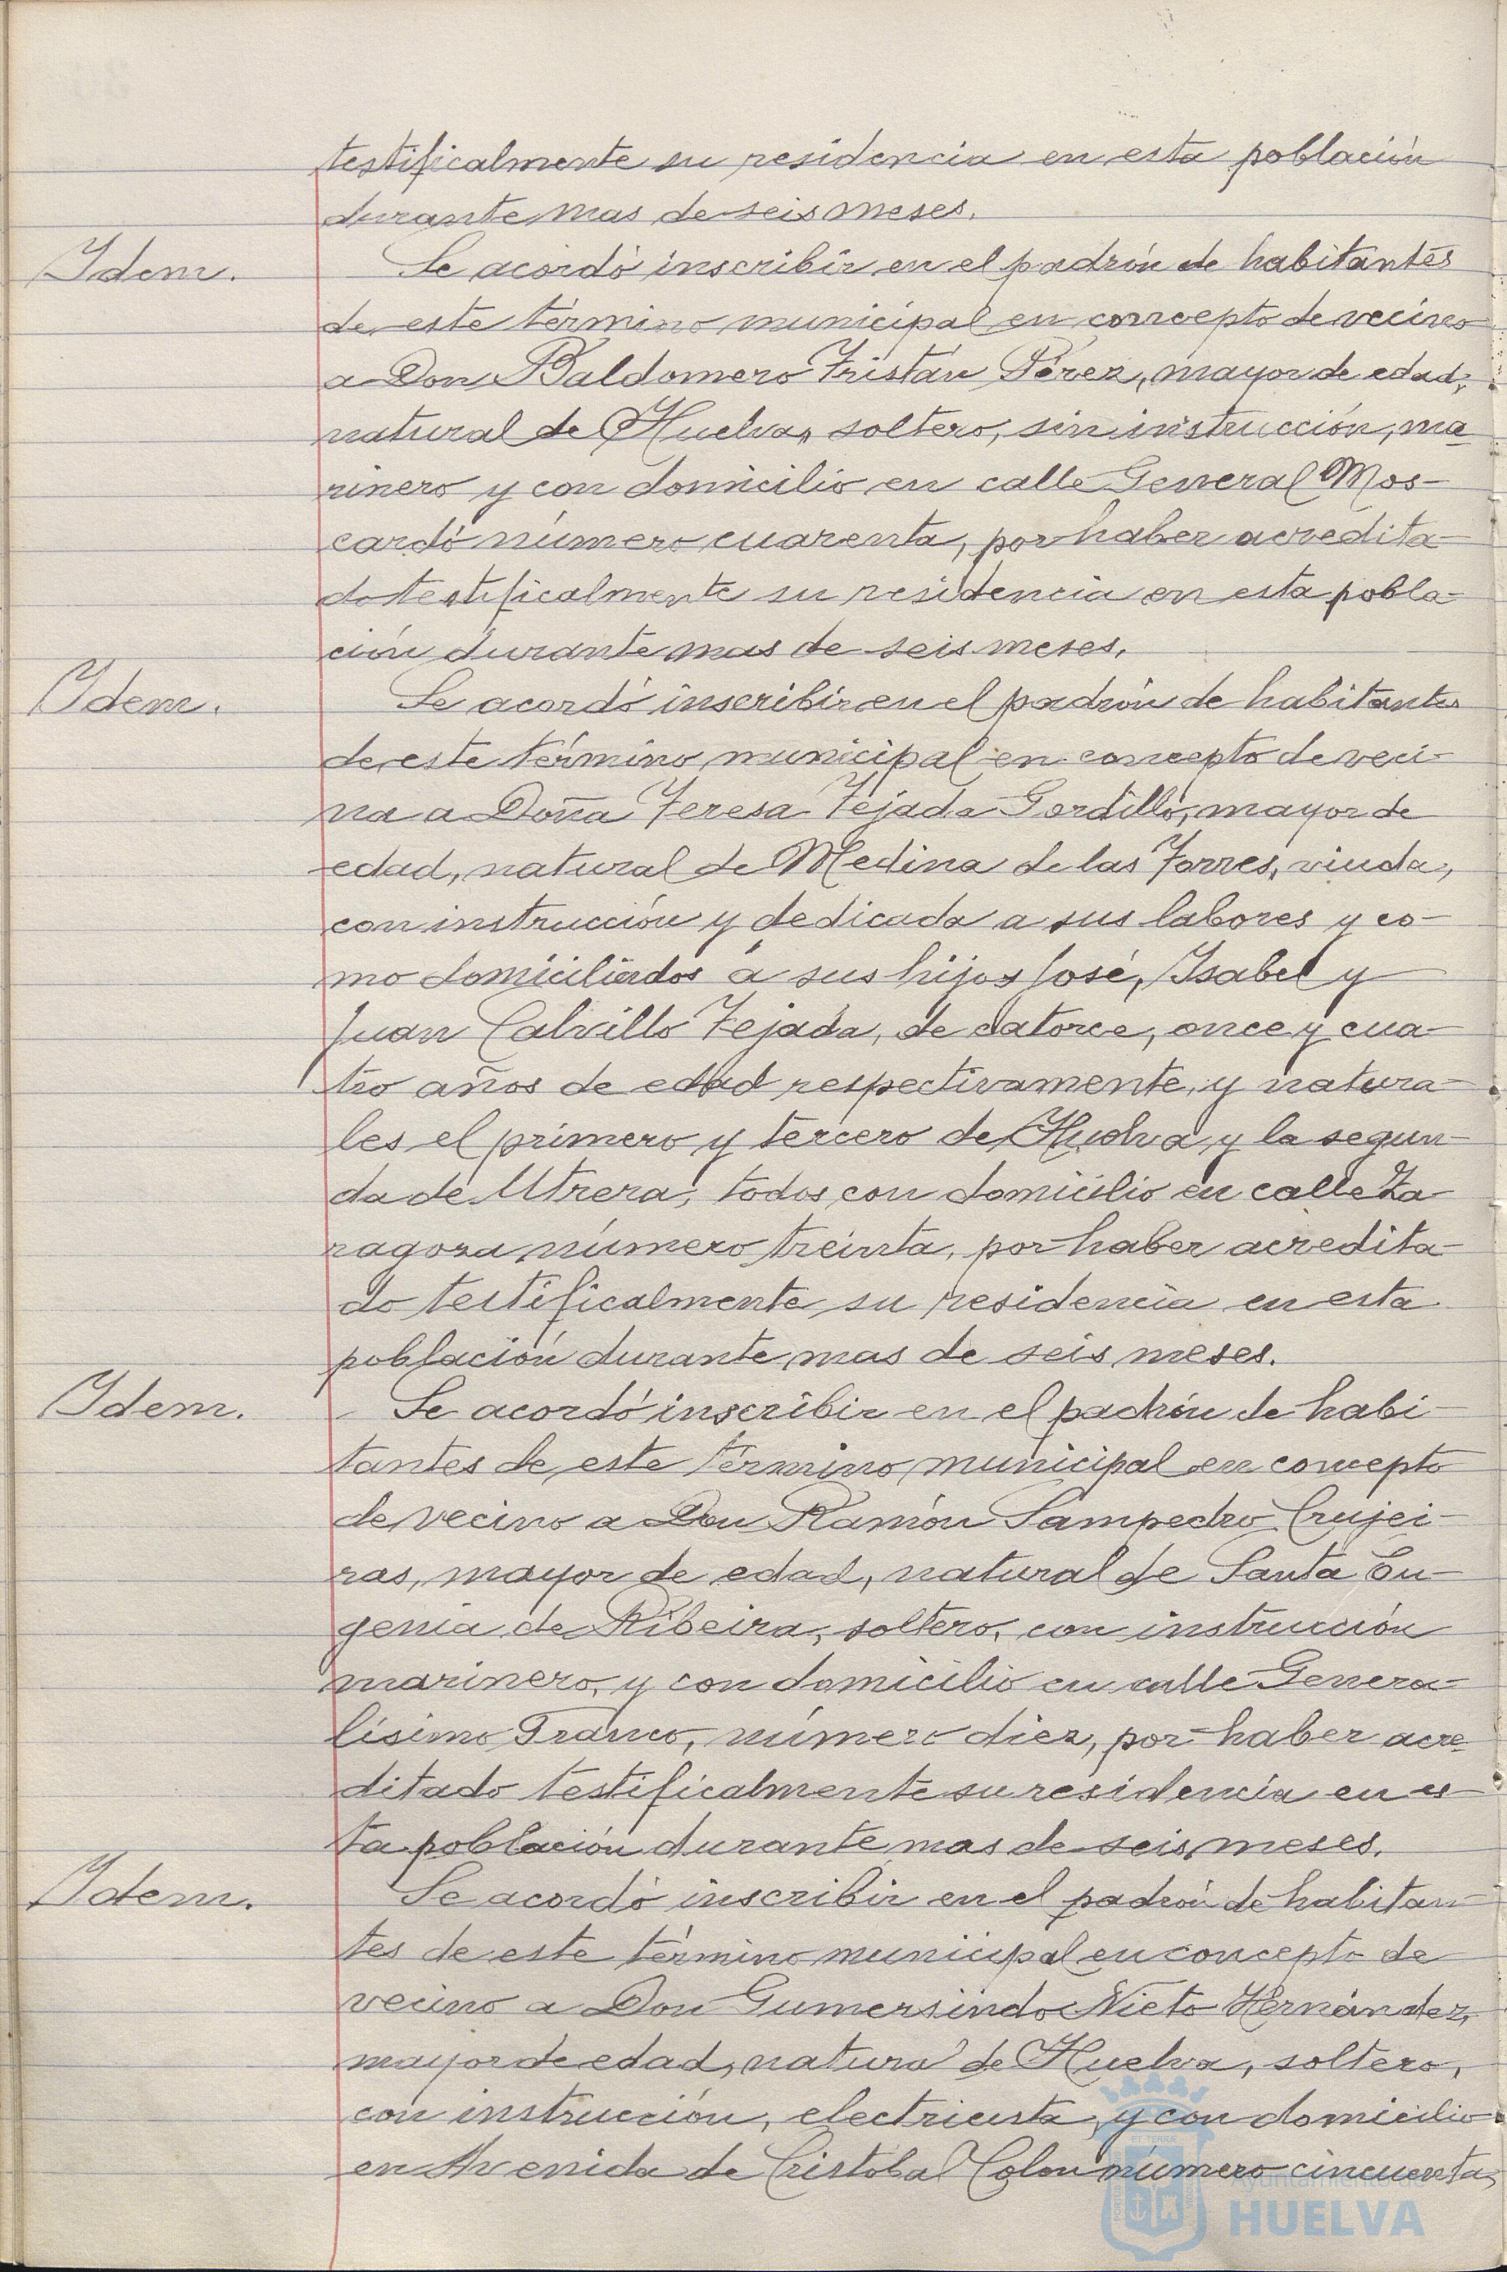 testificalmente su residencia en esta población
durante mas de seis meses.
Idem.
Se acordó inscribir en el padrón de habitantes
de este término municipal en concepto de vecino
a Don Baldomero Tristán Pérez, mayor de edad,
natural de Huelva, soltero, sin instrucción, ma-
rinero y con domicilio en calle General Mos-
cardó número cuarenta, por haber acredita-
do testificalmente su residencia en esta pobla-
ción durante mas de seis meses.
Idem.
Se acordó inscribir en el padrón de habitantes
de este término municipal en concepto de veci-
na a Doña Teresa Tejada Gordillo, mayor de
edad, natural de Medina de las Torres, viuda,
con instrucción y dedicada a sus labores y co-
mo domiciliados a sus hijos José, Isabel y
Juan Calvillo Tejada, de catorce, once y cua-
tro años de edad respectivamente, y natura-
les el primero y tercero de Huelva y la segun-
da de Utrera, todos con domicilio en calle Za-
ragoza número treinta, por haber acredita-
do testificalmente su residencia en esta
población durante mas de seis meses.
Idem.
Se acordó inscribir en el padrón de habi-
tantes de este término municipal en concepto
de vecino a Don Ramón Sampedro Crujei-
ras, mayor de edad, natural de Santa Eu-
genia de Ribeira, soltero, con instrucción
marinero, y con domicilio en calle Genera-
lísimo Franco, número diez, por haber acre-
ditado testificalmente su residencia en es-
ta población durante mas de seis meses.
Idem.
Se acordó inscribir en el padrón de habitan-
tes de este término municipal en concepto de
vecino a Don Gumersindo Nieto Hernández,
mayor de edad, natural de Huelva, soltero,
con instrucción, electricista, y con domicilio
en Avenida de Cristobal Colon número cincuenta,
Ayuntamiento de
HUELVA